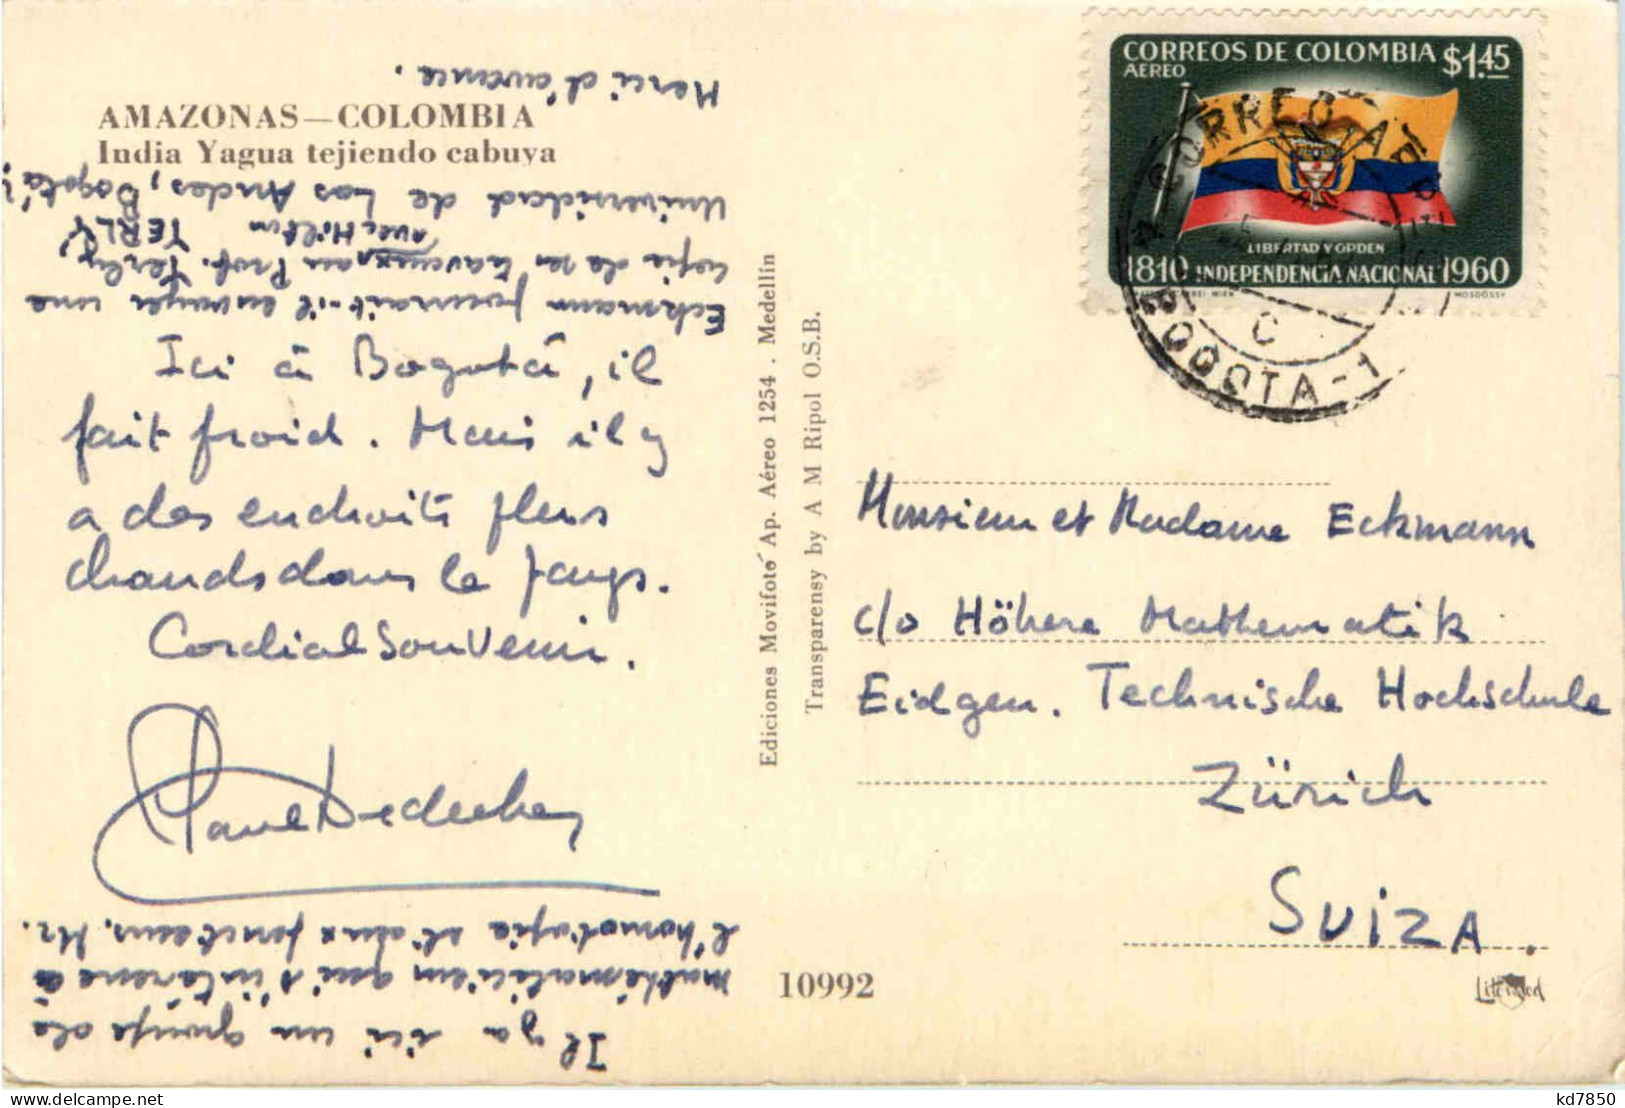 AMAZONAS—COLOMBIA
India Yagua tejiendo cabuya
Ici à Bogotá, il
fait froid. Mais il y
a des endroits plus
chauds dans le pays.
Cordial souvenir.
Il y a ici un groupe de
mathématiciens qui s'intéresse à
l'homotopie et aux foncteurs. Mr.
Eckmann pourrait-il envoyer une
copie de ses travaux au Prof. Yerly,
avec Hilton
YERLY
Universidad de Los Andes, Bogotá?
Merci d'avance.
Ediciones Movifoto Ap. Aéreo 1254 . Medellín
Transparensy by A M Ripol O.S.B.
10992
CORREOS DE COLOMBIA
AEREO
$1.45
LIBERTAD Y ORDEN
1810 INDEPENDENCIA NACIONAL 1960
MOSDÓSSY
CORREO
BOGOTA-1
C
Monsieur et Madame Eckmann
c/o Höhere Mathematik
Eidgen. Technische Hochschule
Zürich
SUIZA.
kd7850